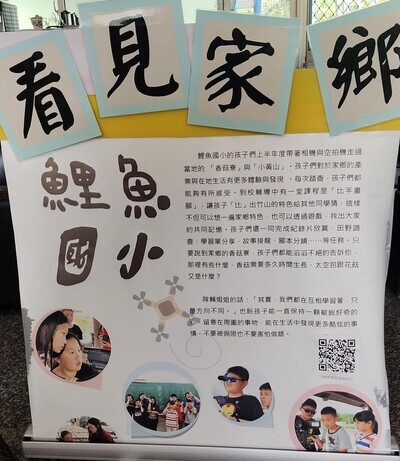 看見家鄉
鯉魚
國小
鯉魚國小的孩子們上半年度帶著相機與空拍機走過
當地的「香菇寮」與「小黃山」，孩子們對於家鄉的產
業與在地生活有更多體驗與發現，每次踏查，孩子們都
能夠有所感受。到校輔導中有一堂課程是「比手畫
腳」，讓孩子「比」出竹山的特色給其他同學猜，這樣
不但可以想一遍家鄉特色，也可以透過遊戲，找出大家
的共同記憶。孩子們還一同完成紀錄片欣賞、田野調
查、學習單分享、故事接龍、腳本分鏡……等任務。只
要說到家鄉的香菇寮，孩子們都能滔滔不絕的告訴你，
那裡有些什麼、香菇需要多久時間生長、太空包跟花菇
又是什麼？
隊輔姐姐的話：「其實，我們都在互相學習著，只
是方向不同。」也盼孩子能一直保持一顆敏銳好奇的
心，留意在周圍的事物，能在生活中發現更多酷炫的事
情，不要被侷限也不要害怕做錯。